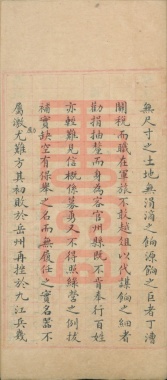 無尺寸之土地無涓滴之餉源餉之巨者丁漕
關稅而職在軍旅不敢越俎以代謀餉之細者
勸捐抽釐而身為客官州縣既不肯奉行百姓
亦較難見信概係募勇又不得照綠營之例拔
補實缺空有保舉之名而無履任之實名器不
屬激尤難方其初敗於岳州再挫於九江兵幾